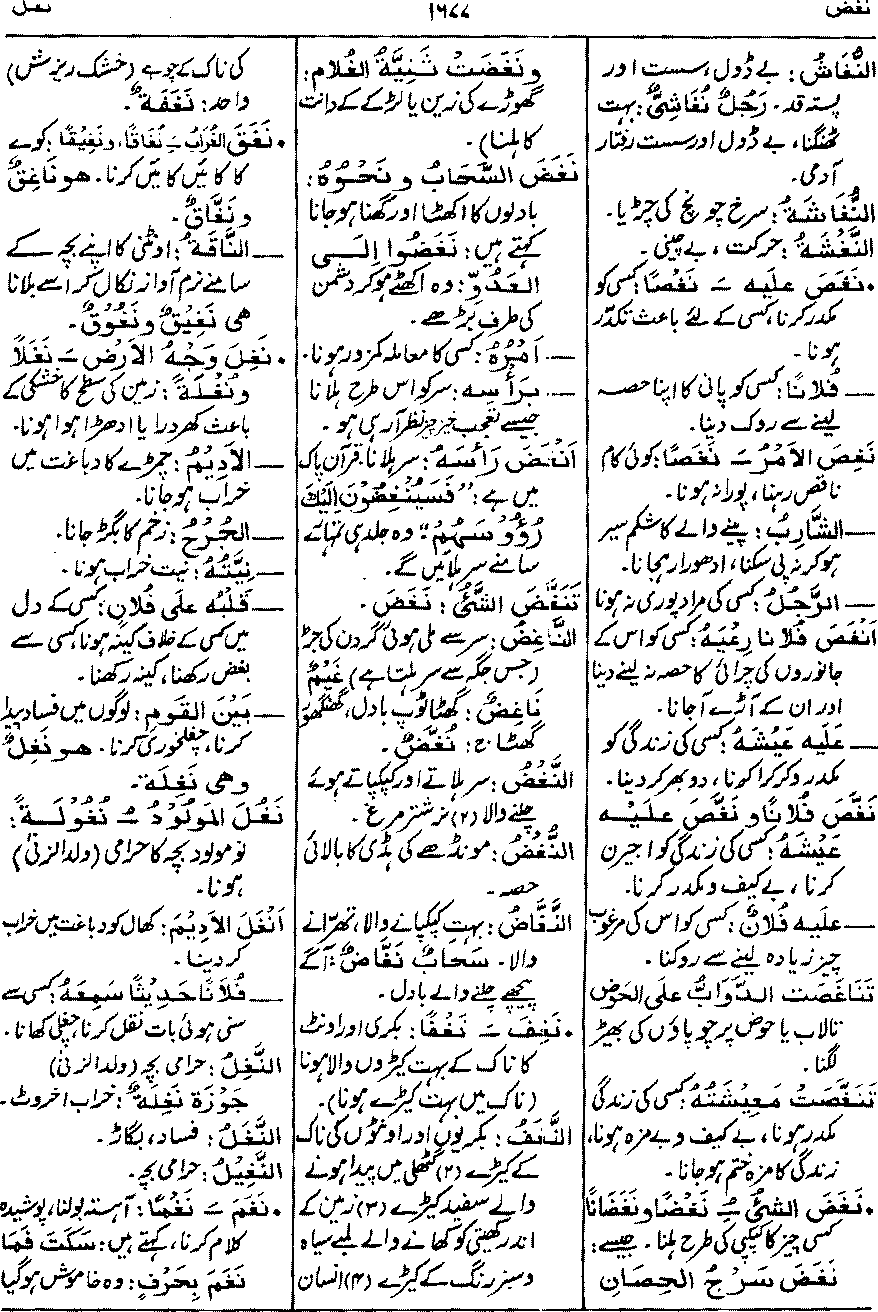 نغض
١٦٧٧
نغل
النُّغَاشُ: بے ڈول، سست اور
پستہ قد۔ رَجُلٌ نُغَاشِیٌّ: بہت
ٹھنگنا، بے ڈول اور سست رفتار
آدمی۔
النُّغَاشَةُ: سرخ چونچ کی چڑیا۔
النَّغْشَةُ: حرکت، بے چینی۔
• نَغَصَ عليه ـَ نَغْصًا: کسی کو
مکدر کرنا، کسی کے لئے باعث تکدّر
ہونا۔
— فُلَانًا: کسی کو پانی کا اپنا حصہ
لینے سے روک دینا۔
نَغِصَ الأمْرُ ـَ نَغَصًا: کوئی کام
ناقص رہنا، پورا نہ ہونا۔
— الشَّارِبُ: پینے والے کا شکم سیر
ہو کر نہ پی سکنا، ادھورا رہجانا۔
— الرَّجُلُ: کسی کی مراد پوری نہ ہونا
اَنْغَصَ فُلَانا رِعْيَهُ: کسی کو اس کے
جانوروں کی چرائی کا حصہ نہ لینے دینا
اور ان کے آڑے آجانا۔
— عَلَيه عَيْشَهُ: کسی کی زندگی کو
مکدر و کرکرا کونا، دوبھر کر دینا۔
نَغَّصَ فُلَانًا و نَغَّصَ عليه
عَيْشَهُ: کسی کی زندگی کو اجیرن
کرنا، بے کیف و مکدر کرنا۔
— عليه فُلَانٌ: کسی کو اس کی مرغوب
چیز زیادہ لینے سے روکنا۔
تَنَاغَصَت الدَّوَابُّ على الحَوْض
تالاب یا حوض پر چوپاؤں کی بھیڑ
لگنا۔
تَنَغَّصَتْ مَعِيْشَتُهُ: کسی کی زندگی
مکدر ہونا، بے کیف و بے مزہ ہونا،
زندگی کا مزہ ختم ہو جانا۔
• نَغَضَ الشئُ ـُِ نَغْضًا و نَغَضَانًا
کسی چیز کا کپکپی کی طرح ہلنا۔ جیسے:
نَغَضَ سَرْجُ الحِصَانِ
و نَغَضَتْ ثَنِيَّةُ الغُلَام:
گھوڑے کی زین یا لڑکے کے دانت
کا ہلنا)۔
نَغَضَ السَّحَابُ و نَحْوُهُ:
بادلوں کا اکھٹا اور گھنا ہو جانا
کہتے ہیں: نَغَضُوا إلى
العَدُوِّ: وہ اکھٹے ہو کر دشمن
کی طرف بڑھے۔
— اَمْرُهُ: کسی کا معاملہ کمزور ہونا۔
— برَأْسِه: سر کو اس طرح ہلانا
جیسے تعجب خیز چیز نظر آرہی ہو۔
اَنْغَضَ رَأْسَهُ: سر ہلانا۔ قرآن پاک
میں ہے: ”فَسَيُنْغِضُوْنَ اِلَيْكَ
رُؤُوْسَهُمْ“ وہ جلد ہی تمہارے
سامنے سر ہلائیں گے۔
تَنَغَّضَ الشَّئُ: نَغَضَ۔
النَّاغِضُ: سر سے ملی ہوئی گردن کی جڑ
(جس جگہ سے سر ہلتا ہے) غَيْمٌ
نَاغِضٌ: گھٹا ٹوپ بادل، گھنگھور
گھٹا ج: نُغَّضٌ۔
النَّغْضُ: سر ہلاتے اور کپکپاتے ہوئے
چلنے والا (۲) نر شتر مرغ۔
النُّغْضُ: مونڈھے کی ہڈی کا بالائی
حصہ۔
النَّغَّاضُ: بہت کپکپانے والا، تھرّانے
والا۔ سَحَابٌ نَغَّاضٌ: آگے
پیچھے چلنے والے بادل۔
• نَغِفَ ـَ نَغَفًا: بکری اور اونٹ
کا ناک کے بہت کیڑوں والا ہونا
(ناک میں بہت کیڑے ہونا)۔
النَّغَفُ: بکریوں اور اونٹوں کی ناک
کے کیڑے (۲) گٹھلی میں پیدا ہونے
والے سفید کیڑے (۳) زمین کے
اندر کھیتی کو کھانے والے لمبے سیاہ
و سبز رنگ کے کیڑے (۴) انسان
کی ناک کے چوہے (خشک ریزش)
واحد: نَغَفَةٌ۔
• نَغَقَ الغُرَابُ ـِ نُغَاقًا، و نَغِيْقًا: کوے
کا کائیں کائیں کرنا۔ هو نَاغِقٌ
و نَغَّاقٌ۔
— النَّاقَةُ: اونٹنی کا اپنے بچہ کے
سامنے نرم آواز نکال کر اسے بلانا
هى نَغِيْقٌ و نَغُوْقٌ۔
• نَغِلَ وَجْهُ الأَرْضِ ـَ نَغَلًا
و نُغْلَةً: زمین کی سطح کا خشکی کے
باعث کھردرا یا ادھڑا ہوا ہونا۔
— الأَدِيْمُ: چمڑے کا دباغت میں
خراب ہو جانا۔
— الجُرْحُ: زخم کا بگڑ جانا۔
— نِيَّتُهُ: نیت خراب ہونا۔
— قَلْبُه على فُلَانٍ: کسی کے دل
میں کسی کے خلاف کینہ ہونا، کسی سے
بغض رکھنا، کینہ رکھنا۔
— بَيْنَ القَومِ: لوگوں میں فساد پیدا
کرنا، چغلخوری کرنا۔ هو نَغِلٌ
وهى نَغِلَة۔
نَغُلَ المَوْلُوْدُ ـُ نُغُوْلَةً:
نو مولود بچہ کا حرامی (ولد الزنیٰ)
ہونا۔
اَنْغَلَ الأَدِيْمَ: کھال کو دباغت میں خراب
کر دینا۔
— فُلَانًا حَدِيْثًا سَمِعَهُ: کسی سے
سنی ہوئی بات نقل کرنا، چغلی کھانا۔
النَّغِلُ: حرامی بچہ (ولد الزنیٰ)
جَوْزَة نَغِلَةٌ: خراب اخروٹ۔
النَّغَلُ: فساد، بگاڑ۔
النَّغِيْلُ: حرامی بچہ۔
• نَغَمَ ـَ نَغْمًا: آہستہ بولنا، پوشیدہ
کلام کرنا، کہتے ہیں: سَكَتَ فَمَا
نَغَمَ بِحَرْفٍ: وہ خاموش ہو گیا